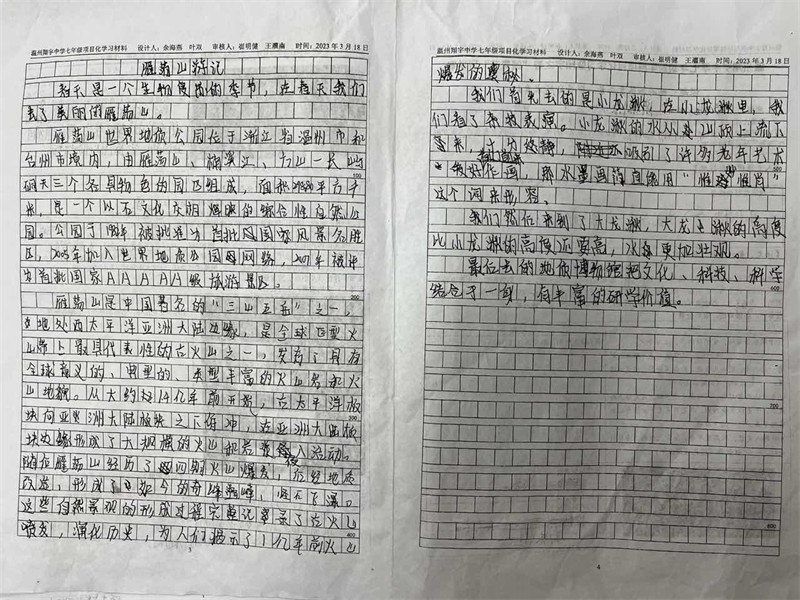 温州翔宇中学七年级项目化学习材料 设计人：余海燕 叶双 审核人：崔明健 王 南 时间：2023年3月18日
雁荡山游记
春天是一个生物复苏的季节，在春天我们
去了美丽的雁荡山。
雁荡山世界地质公园位于浙江省温州市和
台州市境内，由雁荡山、楠溪江、方山一长屿
硐天三个各具特色的园区组成，面积 平方千
米，是一个以石文化 的综合性自然公
100
园。公园于 年被批准为首批国家风景名胜
区，2005年加入世界地质公园网络，2007年被评
为首批国家AAAAA级旅游景区。
200
雁荡山是中国著名的“三山五岳”之一，
地处西太平洋亚洲大陆边缘，是全球 火
山带上最具代表性的古火山之一，发育了具有
全球意义的、典型的、类型丰富的火山岩和火
山地貌。从大约 亿年前开始，古太平洋板
300
块向亚洲大陆板块之下俯冲，在亚洲大陆板
块边缘形成了大规模的火山 侵入活动。
随后雁荡山经历了四期火山爆发，后经地质
改造，形成了如今的奇峰 ， 飞瀑。
这些自然景观的形成过程完整记录了古火山
喷发，演化历史，为人们揭示了1亿年前火山
400
温州翔宇中学七年级项目化学习材料 设计人：余海燕 叶双 审核人：崔明健 王 南 时间：2023年3月18日
爆发的 。
我们首先去的是小龙湫，在小龙湫里，我
们看了 表演。小龙湫的水从山顶上流下
来，十分 ，吸引了许多老年艺术
我们 作画，那水墨画简直能用“惟妙惟肖”
这个词来形容。
我们然后来到了大龙湫，大龙湫的高度
比小龙湫的高度还要高，水 更加壮观。
最后去的地质博物馆把文化、科技、科学
结合于一身，有丰富的研学价值。
600
700
800
4